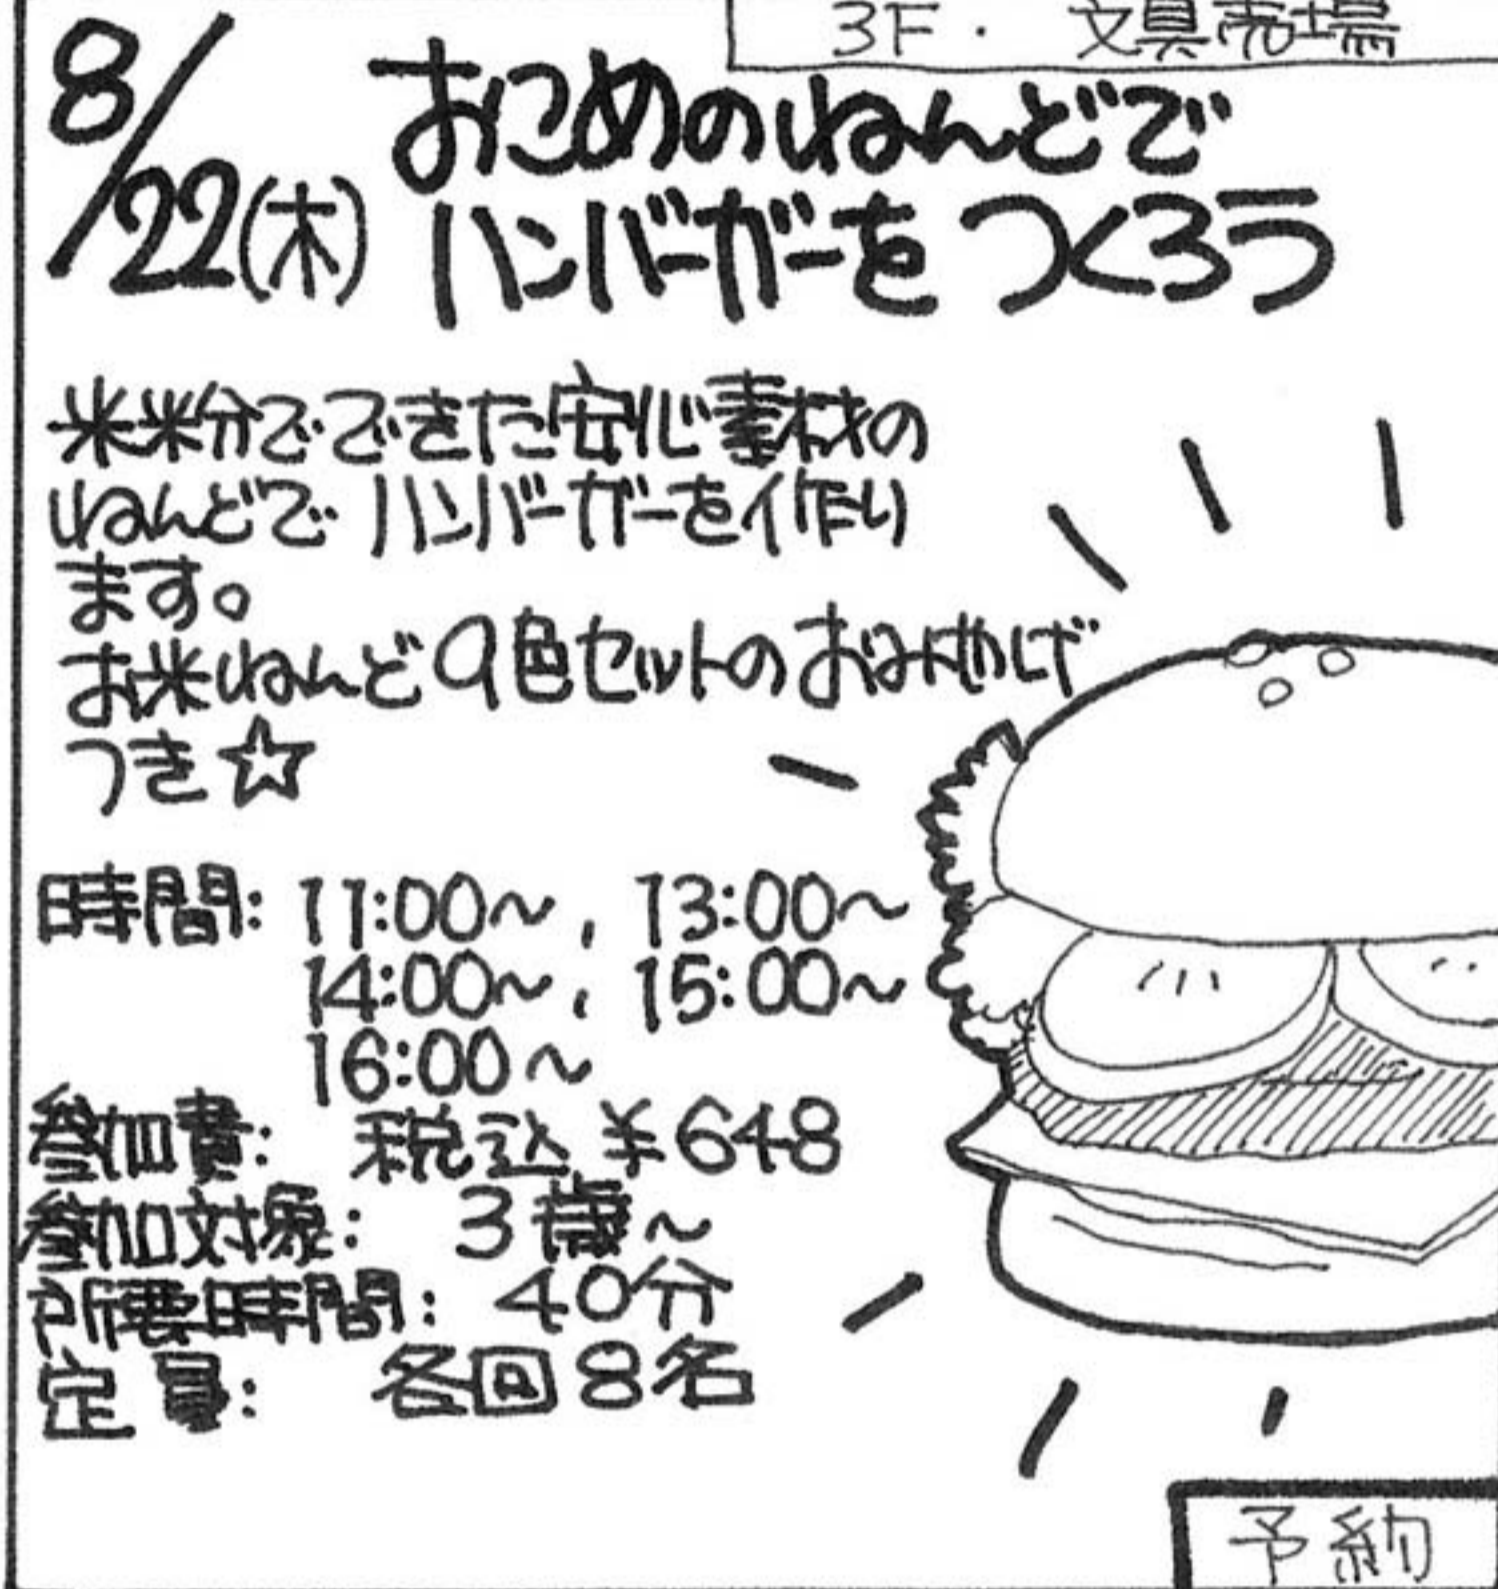 3F・ 文具売場
8/22(木)
おこめのねんどで
ハンバーガーを つくろう
米粉でできた安心素材の
ねんどで ハンバーガーを作り
ます。
お米ねんど9色セットのおみやげ
つき☆
時間: 11:00～, 13:00～
14:00～, 15:00～
16:00～
参加費: 税込 ¥648
参加対象: 3歳～
所要時間: 40分
定員: 各回8名
予約